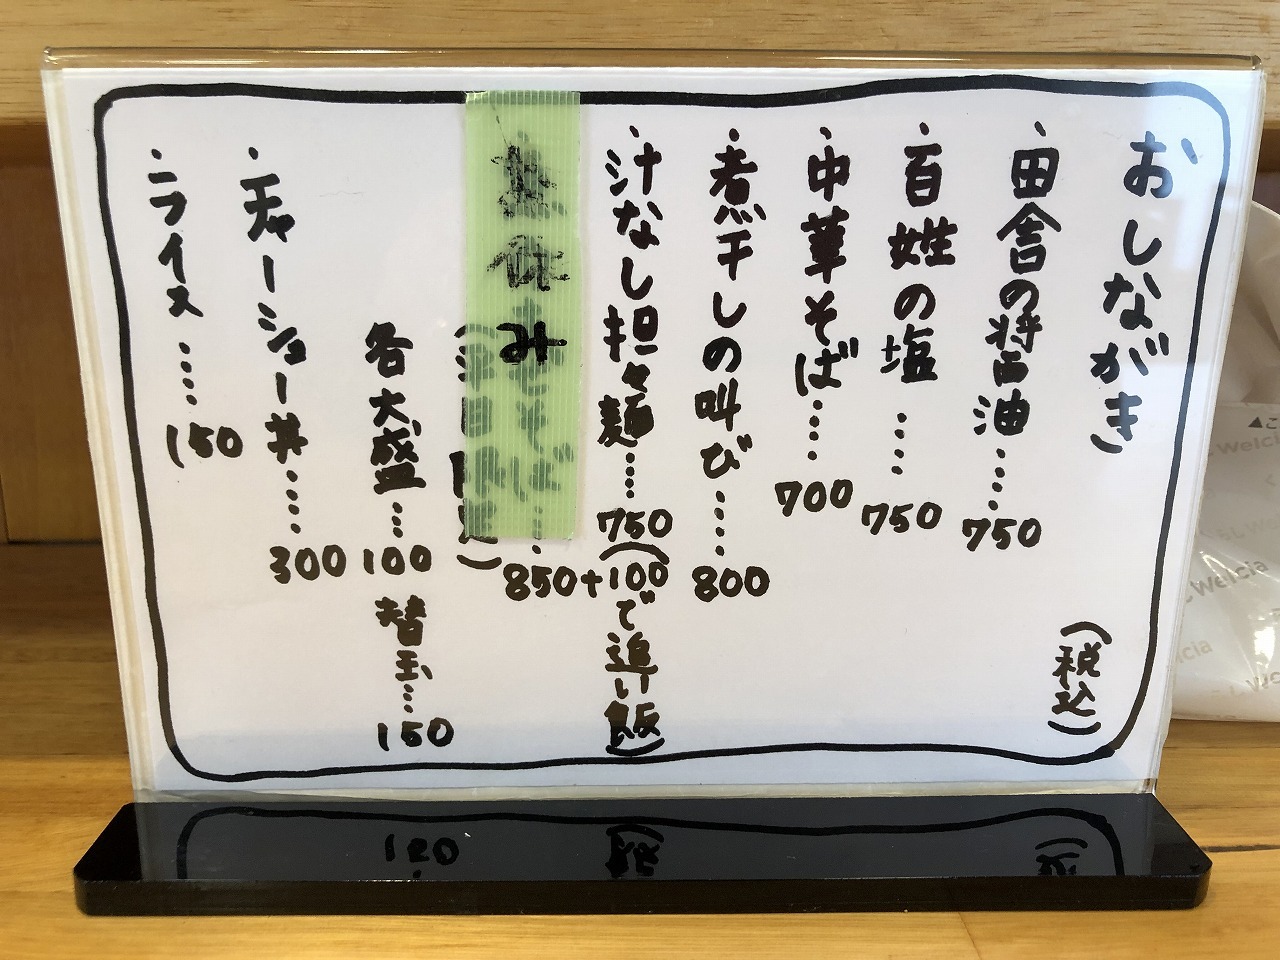 おしながき
(税込)
・田舎の醤油……750
・百姓の塩……750
・中華そば……700
・煮干しの叫び……800
・汁なし担々麺……750
(+100で追い飯)
休み
そば……850
各大盛…100
替玉…150
・チャーシュー丼……300
・ライス……150
Welcia